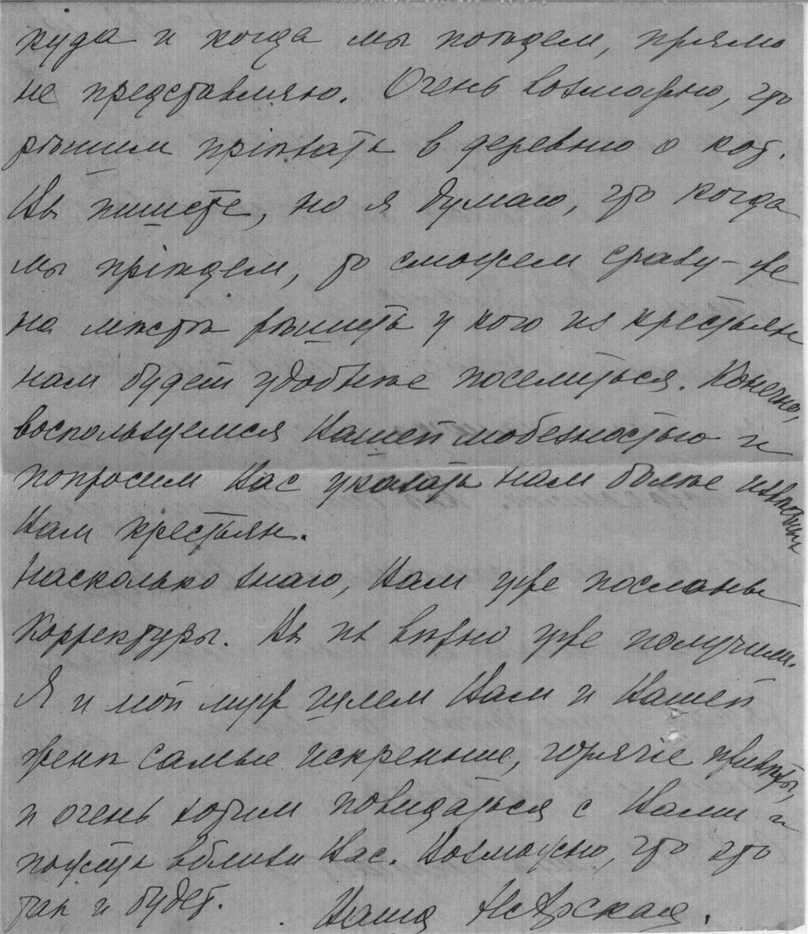 куда и когда мы поѣдем, прямо
не представляю. Очень возможно, что
рѣшим пріѣхать в деревню о кот.
Вы пишете, но я думаю, что когда
мы пріѣдем, то сможем сразу-же
на мѣстѣ рѣшить у кого из крестьян
нам будет удобнѣе поселиться. Конечно,
воспользуемся Вашей любезностью и
попросим Вас указать нам болѣе извѣстных
Вам крестьян.
Насколько знаю, Вам уже посланы
корректуры. Вы их вѣрно уже получили.
Я и мой муж шлем Вам и Вашей
женѣ самые искренніе, горячіе привѣты,
и очень хотим повидаться с Вами и
пожить вблизи Вас. Возможно, что это
так и будет.
Ваша